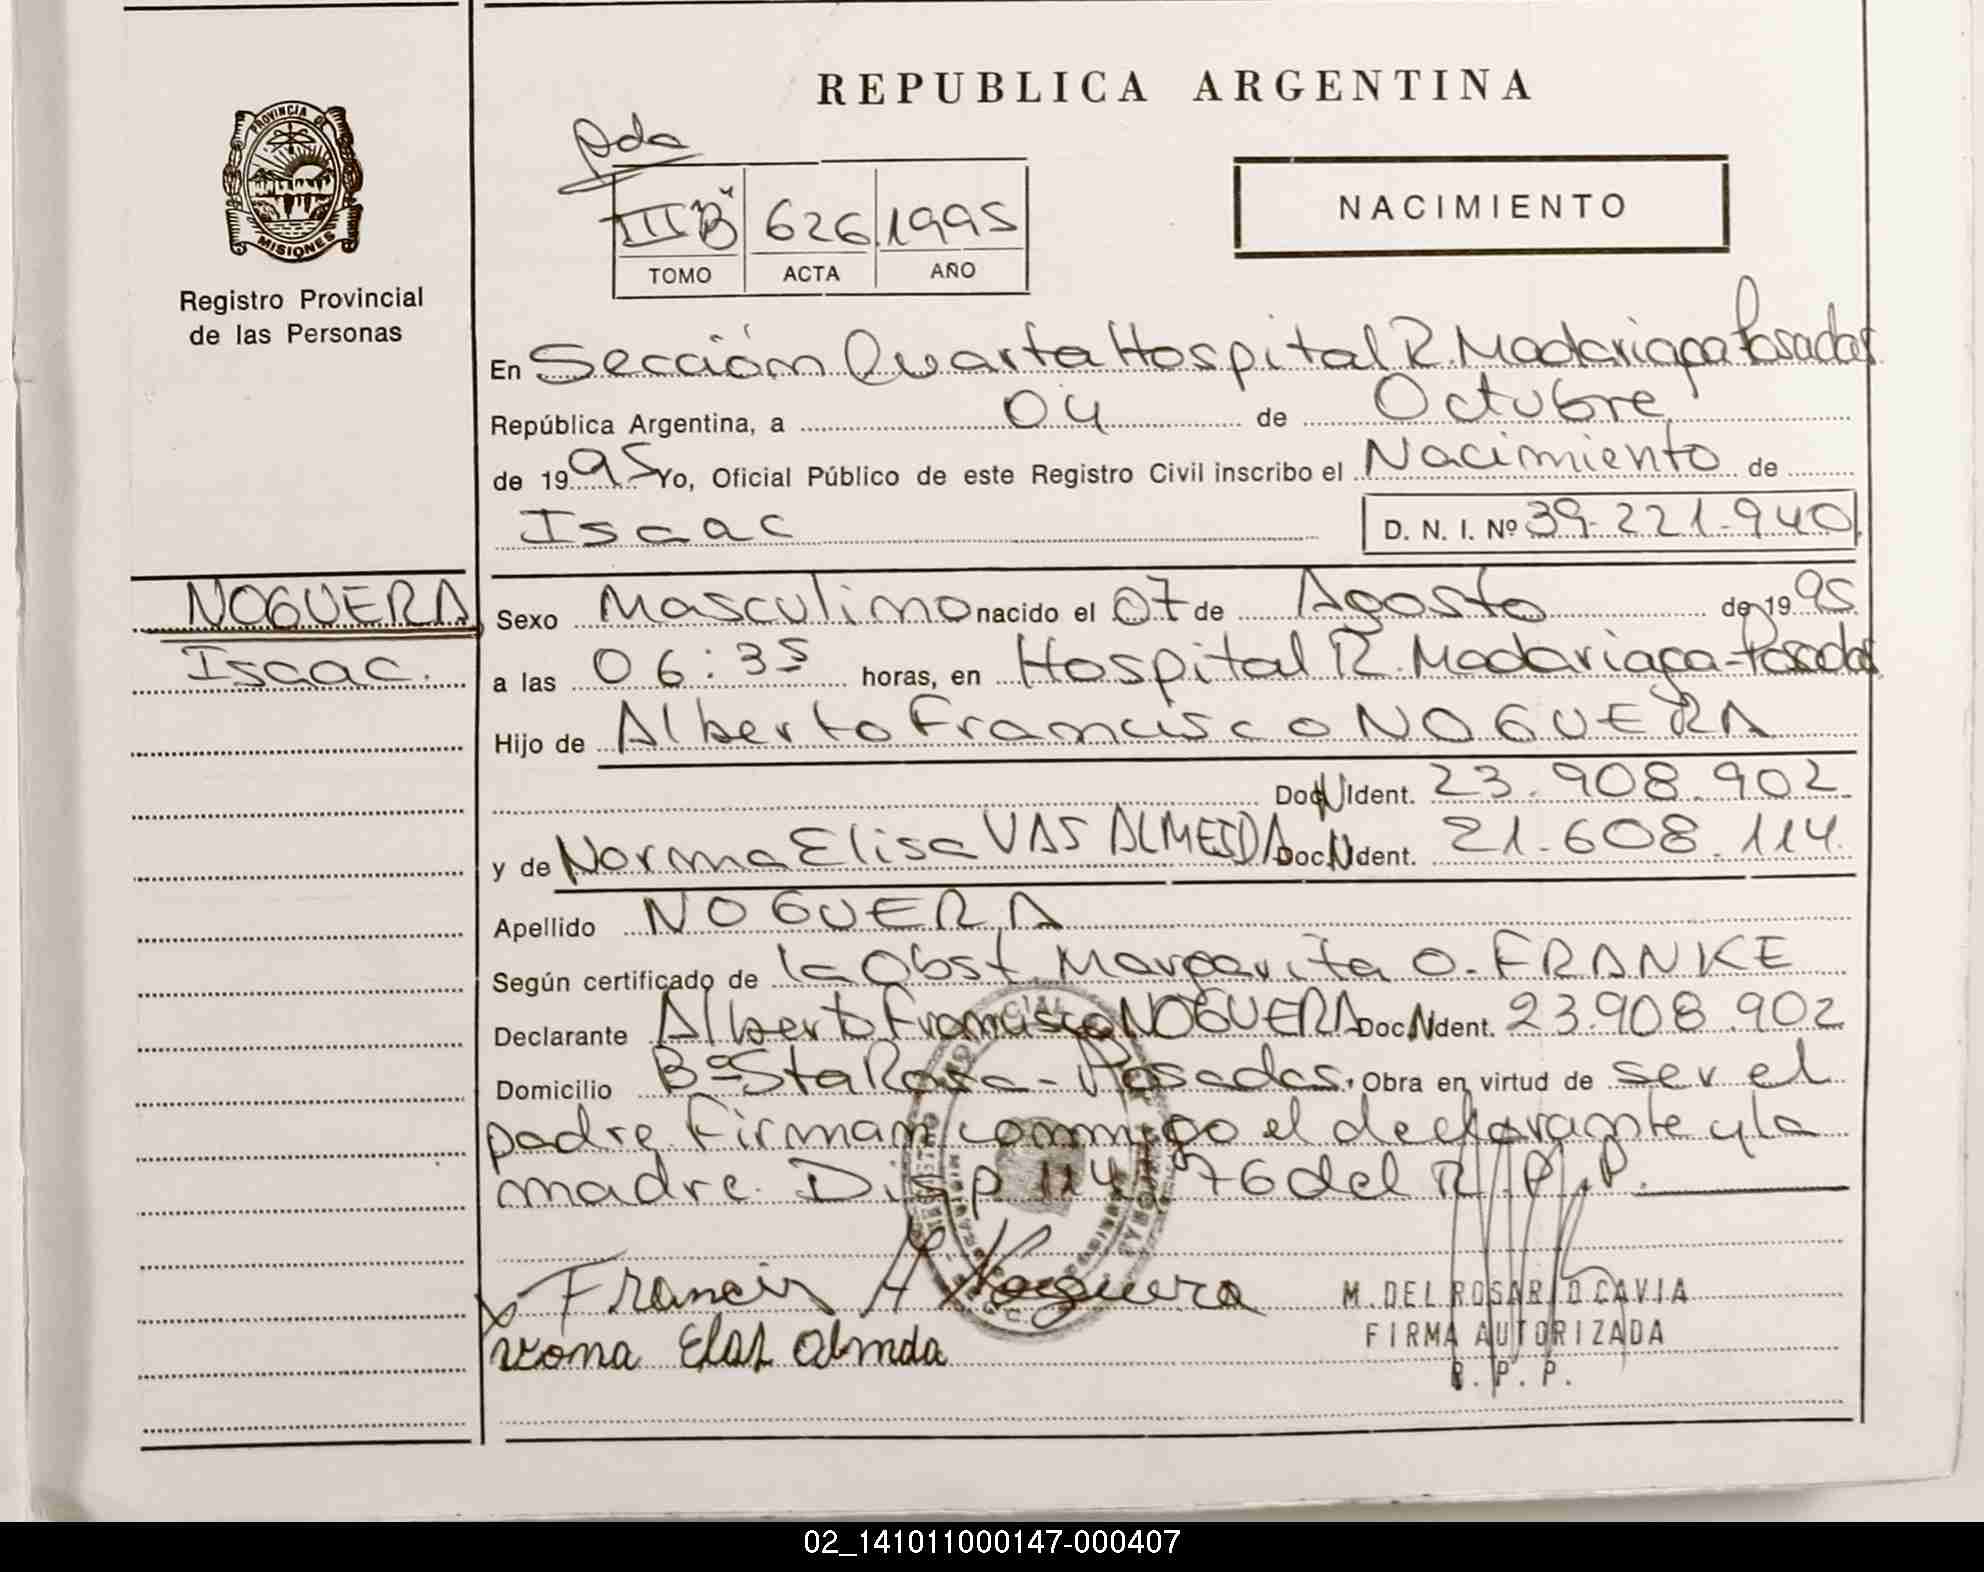 REPUBLICA ARGENTINA
PROVINCIA DE
MISIONES
Registro Provincial
de las Personas
Pda
III B 626 1995
TOMO ACTA AÑO
NACIMIENTO
En Sección Cuarta Hospital R. Madariaga Posadas
República Argentina, a 04 de Octubre
de 1995 Yo, Oficial Público de este Registro Civil inscribo el Nacimiento de
Isaac D. N. I. Nº 39.221.940
NOGUERA
Isaac.
Sexo Masculino nacido el 07 de Agosto de 1995
a las 06:35 horas, en Hospital R. Madariaga-Posadas
Hijo de Alberto Francisco NOGUERA
Doc. N Ident. 23.908.902
y de Norma Elisa VAS ALMEIDA Doc. N Ident. 21.608.114.
Apellido NOGUERA
Según certificado de la Obst. Margarita O. FRANKE
Declarante Alberto Francisco NOGUERA Doc. N Ident. 23.908.902
Domicilio Bº Sta Rosa - Posadas. Obra en virtud de ser el
padre. Firman conmigo el declarante y la
madre. Disp 114/76 del R.P.P.
Francis A Noguera
M. DEL ROSARIO CAVIA
FIRMA AUTORIZADA
R. P. P.
02_141011000147-000407